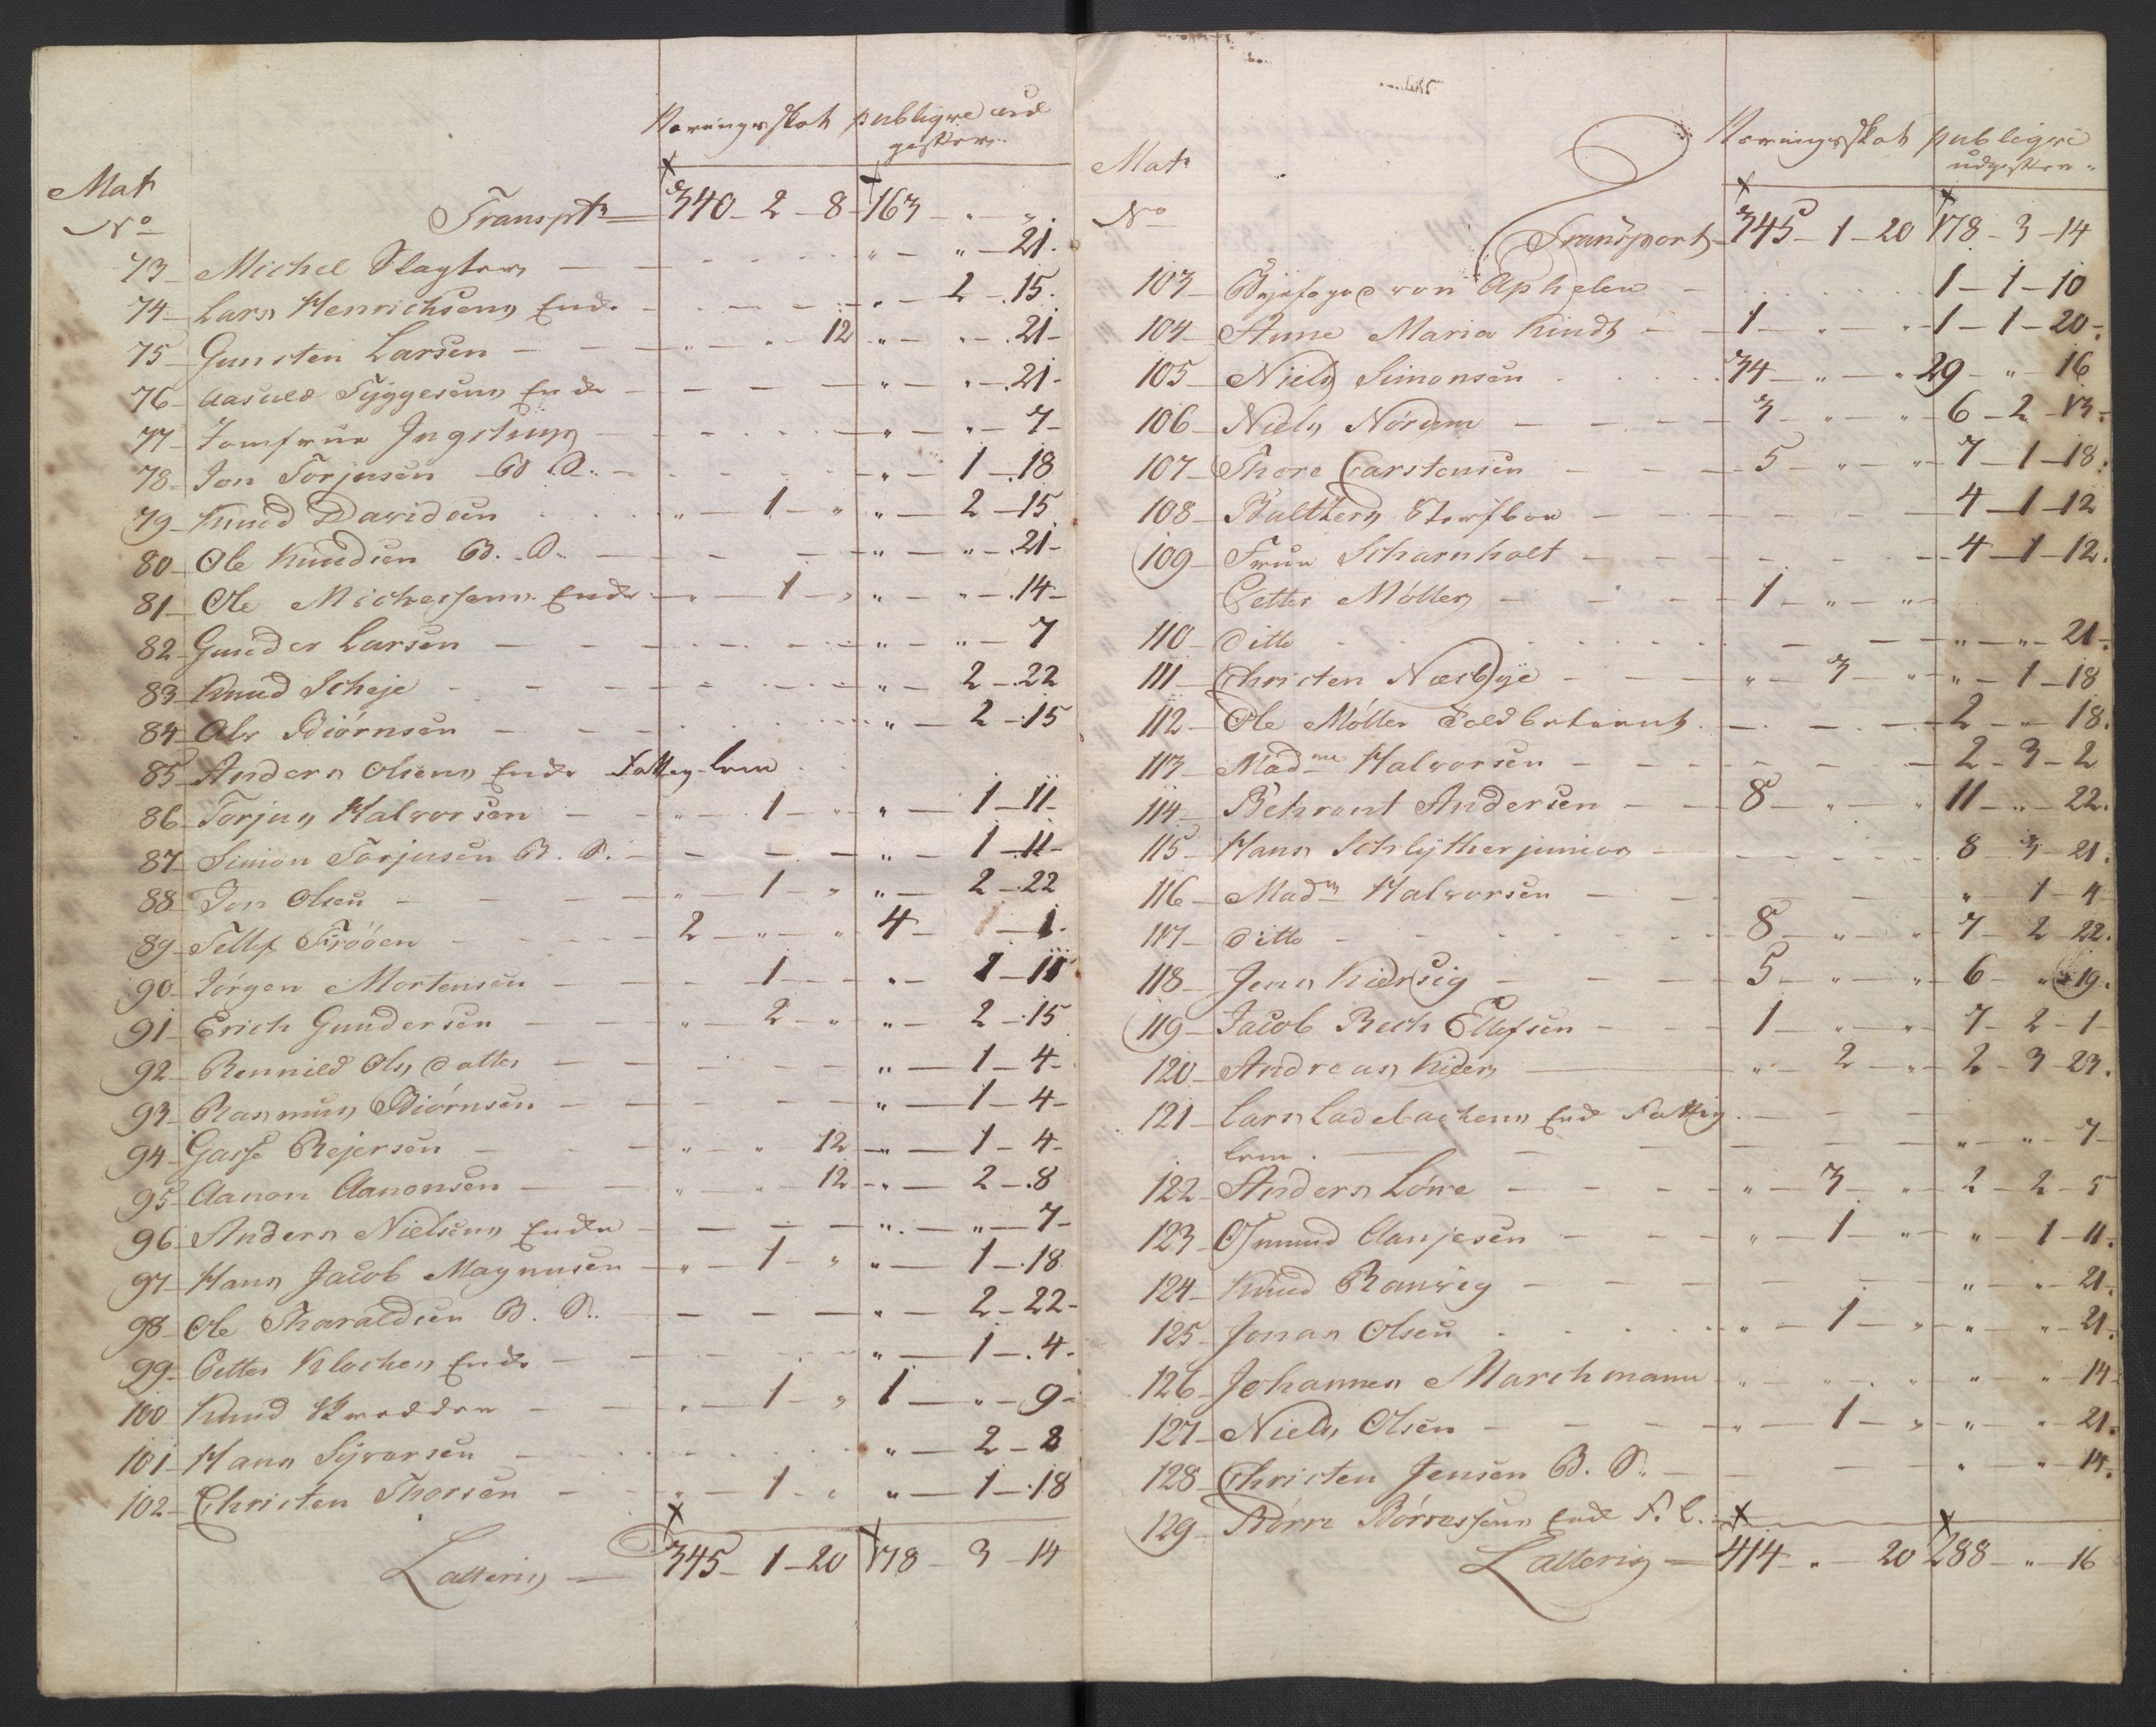 Næringsskat publiqve ud
gifter
Mat
No
Transpt 340 - 2 - 8 163 - " - "
73 Michel Slagter " - " - 21
74 Lars Henrichsens Enke " - 2 - 15
75 Gunsten Larsen " - " - 12 " - " - 21
76 Aasuld Tyggesens Enke " - " - 21
77 Jomfrue Ingstrup " - " - 7
78 Jon Torjusen B. S. " - 1 - 18
79 Knud Davidsen " - 1 - " " - 2 - 15
80 Ole Knudsen B. S. " - " - 21
81 Ole Michelsens Enke " - 1 - " " - " - 14
82 Gunder Larsen " - " - 7
83 Knud Scheje " - 2 - 22
84 Ole Biörnsen " - 2 - 15
85 Anders Olsens Enke Fattig lem
86 Torjus Halvorsen " - 1 - " " - 1 - 11
87 Simon Torjusen B. S. " - 1 - 11
88 Jon Olsen " - 1 - " " - 2 - 22
89 Tellef Frööen 2 - " - " 4 - 1
90 Jörgen Mortensen 1 " - 1 - 11
91 Erich Gundersen " - 2 - " " - 2 - 15
92 Rennild Ols datter " - 1 - 4
93 Rasmus Biörnsen " - 1 - 4
94 Gasse Rejersen " - " - 12 " - 1 - 4
95 Aanon Aanonsen " - " - 12 " - 2 - 8
96 Anders Nielsens Enke " - " - 7
97 Hans Jacob Magnusen " - 1 - " " - 1 - 18
98 Ole Tharaldsen B. S. " - 2 - 22
99 Petter Klockers Enke " - 1 - 4
100 Knud Skrædder " - 1 - " 1 - " - 9
101 Hans Syversen " - 2 - 8
102 Christen Thorsen " - 1 - " " - 1 - 18
Lattering 345 - 1 - 20 178 - 3 - 14
Næringsskat publiqve
udgifter
Mat
No
Transport 345 - 1 - 20 178 - 3 - 14
103 Byefoged von Aphelen 1 - 1 - 10
104 Anne Maria Kindt 1 - " - " 1 - 1 - 20
105 Niels Simonsen 34 - " - " 29 - " - 16
106 Niels Nördam 3 - " - " 6 - 2 - 13
107 Thore Carstensen 5 - " - " 7 - 1 - 18
108 Balthers 4 - 1 - 12
109 Frue Scharnholt 4 - 1 - 12
Petter Möller 1 - " - "
110 ditto " - " - 21
111 Christen Næsbye " - 3 - " " - 1 - 18
112 Ole Möller Toldbetient 2 - " - 18
113 Madme Halvorsen 2 - 3 - 2
114 Behrent Andersen 8 - " - " 11 - " - 22
115 Hans Schlyther junior 8 - 3 - 21
116 Madm Halvorsen " 1 - 4
117 ditto 8 - " - " 7 - 2 - 22
118 Jens Kidersig 5 - " - " 6 - " - 19
119 Jacob Rech Ellefsen 1 - " - " 7 - 2 - 1
120 Andreas Kider " - 2 - " 2 - 3 - 23
121 Lars Ladebackens Enke Fattig
lem " - " - 7
122 Anders Löwe " - 3 - " 2 - 2 - 5
123 Osmund Aanjesen " - 1 - " " - 1 - 11
124 Knud Ranvig " - " - 21
125 Jonas Olsen " - 1 - " " - " - 21
126 Johannes Marchmann " - " - " " - " - 14
127 Niels Olsen " - 1 - " " - " - 21
128 Christen Jensen B. S. " - " - 14
129 Börre Börresens Enke F. L.
Lattering 414 - " - 20 288 - " - 16